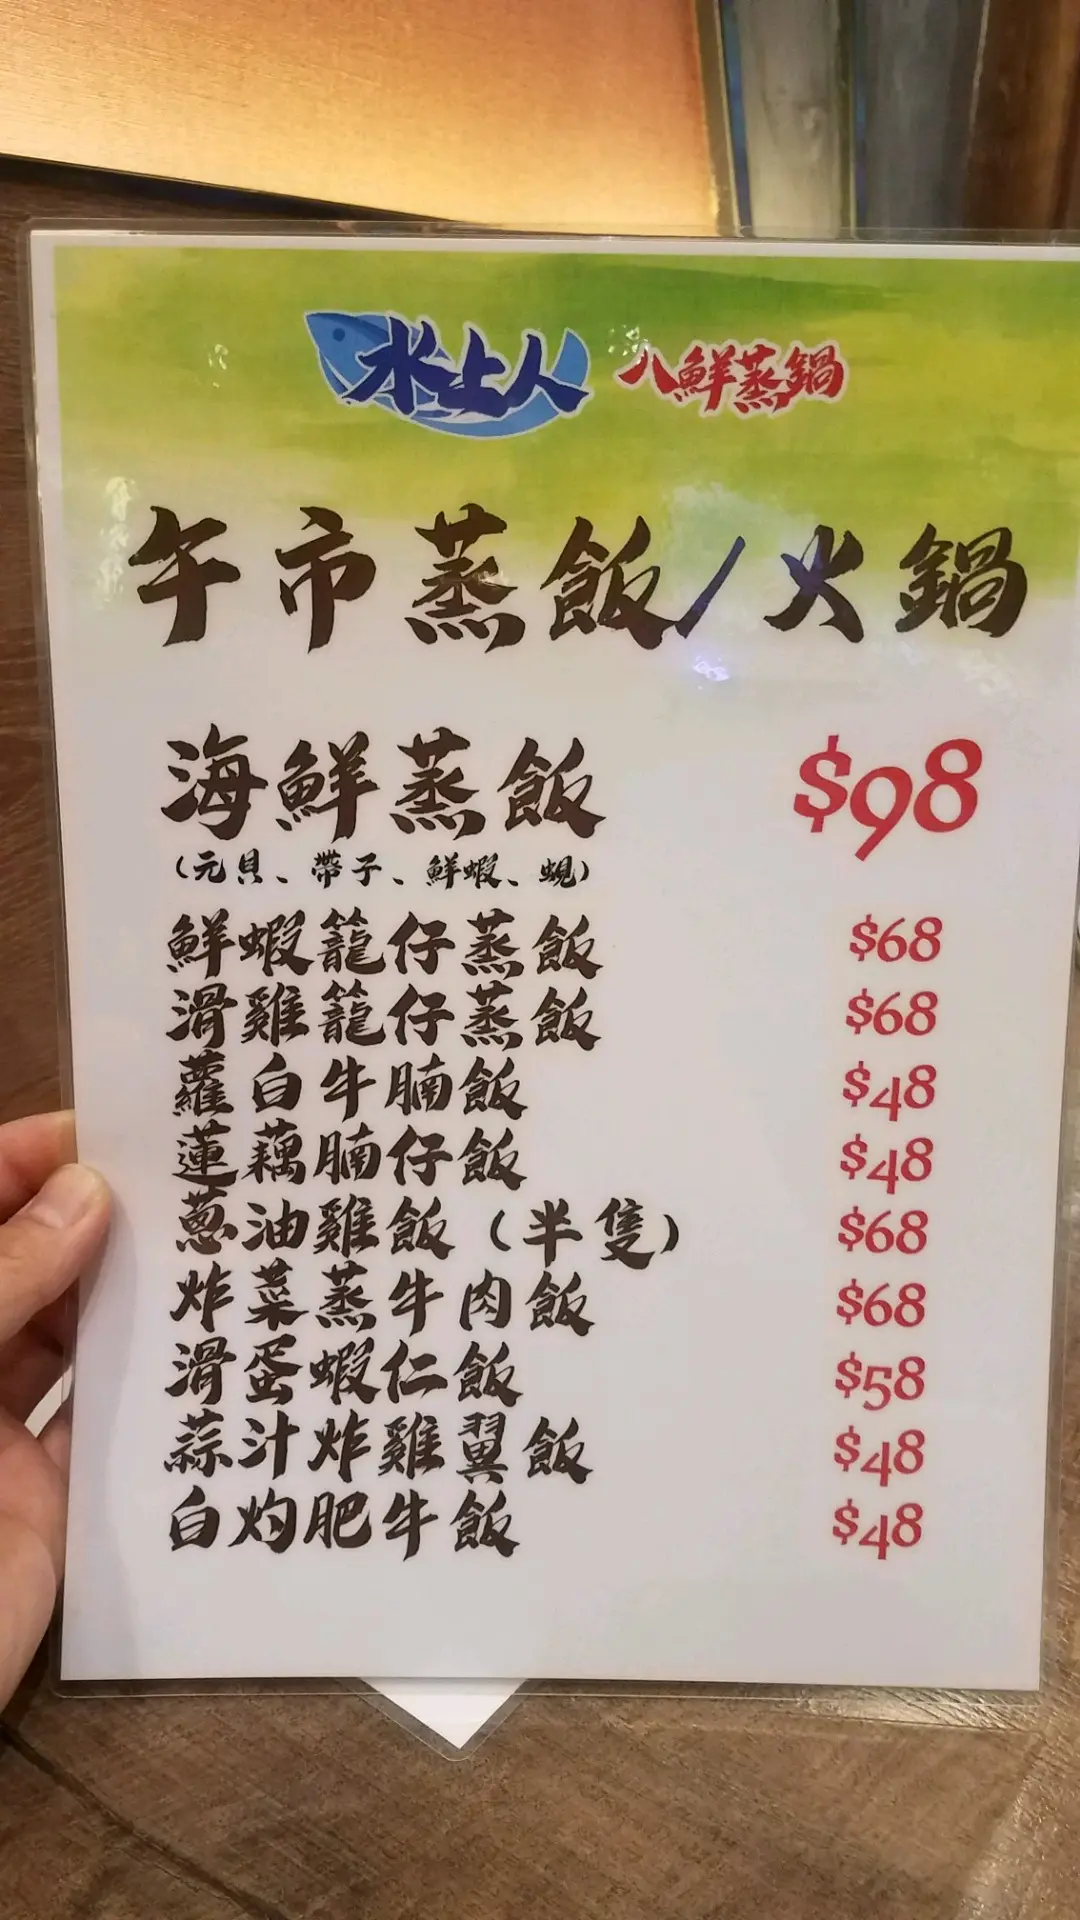 水上人 八鮮蒸鍋
午市蒸飯/火鍋
海鮮蒸飯 $98
(元貝、帶子、鮮蝦、蜆)
鮮蝦籠仔蒸飯 $68
滑雞籠仔蒸飯 $68
蘿白牛腩飯 $48
蓮藕腩仔飯 $48
蔥油雞飯(半隻) $68
炸菜蒸牛肉飯 $68
滑蛋蝦仁飯 $58
蒜汁炸雞翼飯 $48
白灼肥牛飯 $48